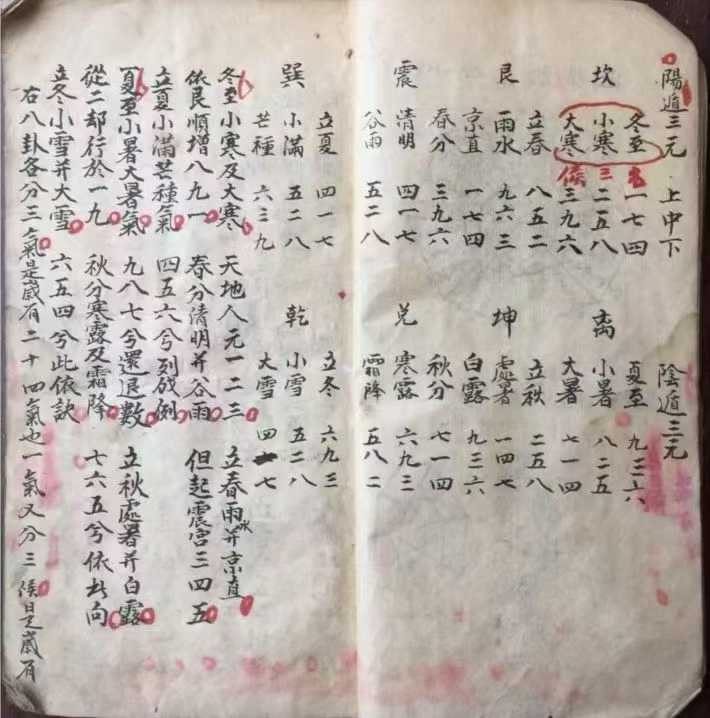 陽遁三元 上中下
坎
冬至 一七四
小寒 二五八
大寒 三九六
三候
艮
立春 八五二
雨水 九六三
京直 一七四
震
春分 三九六
清明 四一七
谷雨 五二八
巽
立夏 四一七
小滿 五二八
芒種 六三九
陰遁三元
离
夏至 九三六
小暑 八二五
大暑 七一四
坤
立秋 二五八
處暑 一四七
白露 九三六
兌
秋分 七一四
寒露 六九三
霜降 五八二
乾
立冬 六九三
小雪 五二八
大雪 四一七
冬至小寒及大寒 天地人元一二三 立春雨水并京直
依艮順增八九一 春分清明并谷雨 但起震宮三四五
立夏小滿芒種氣 四五六兮列成例
夏至小暑大暑氣 九八七兮還退數 立秋處暑并白露
從二却行於一九 秋分寒露及霜降 七六五兮依向
立冬小雪并大雪 六五四兮此依訣
右八卦各分三氣是歲有二十四氣也一氣又分三候是歲有